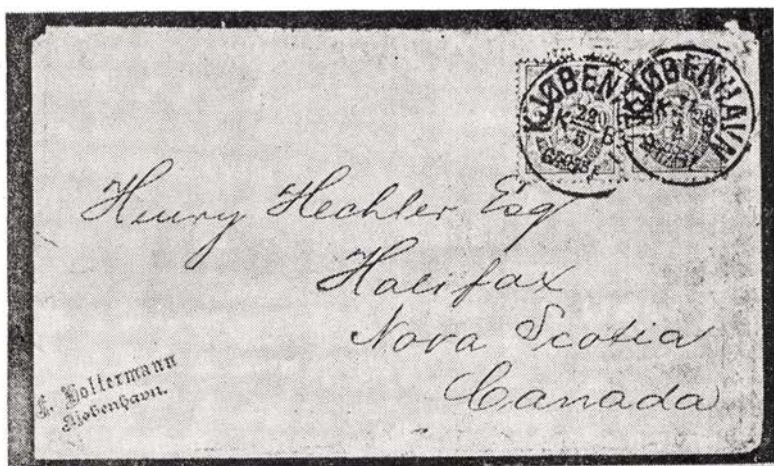 KJØBENHAVN
K
B
Henry Hechler Esq
Halifax
Nova Scotia
Canada
Holtermann
Kjøbenhavn.